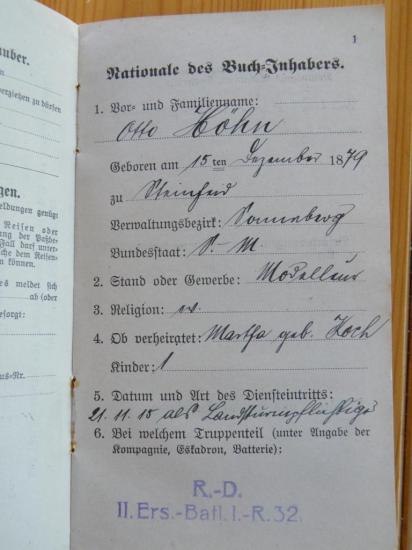 auber.
erziehen zu dürfen
gen.
eldungen genügt
Reisen oder
ung der Paßbe-
Fall darf unter-
che dem Reisen-
n können.
es meldet sich
ab (oder
esorgt:
us-Nr.
1
Nationale des Buch-Inhabers.
1. Vor- und Familienname:
Otto Höhn
Geboren am 15ten Dezember 1879
zu Steinheid
Verwaltungsbezirk: Sonneberg
Bundesstaat: S. M.
2. Stand oder Gewerbe: Modelleur
3. Religion: ev.
4. Ob verheiratet: Martha geb. Koch
Kinder: 1
5. Datum und Art des Diensteintritts:
21.11.15 als Landsturmpflichtiger
6. Bei welchem Truppenteil (unter Angabe der
Kompagnie, Eskadron, Batterie):
R.-D.
II. Ers.-Batl. I.-R. 32.